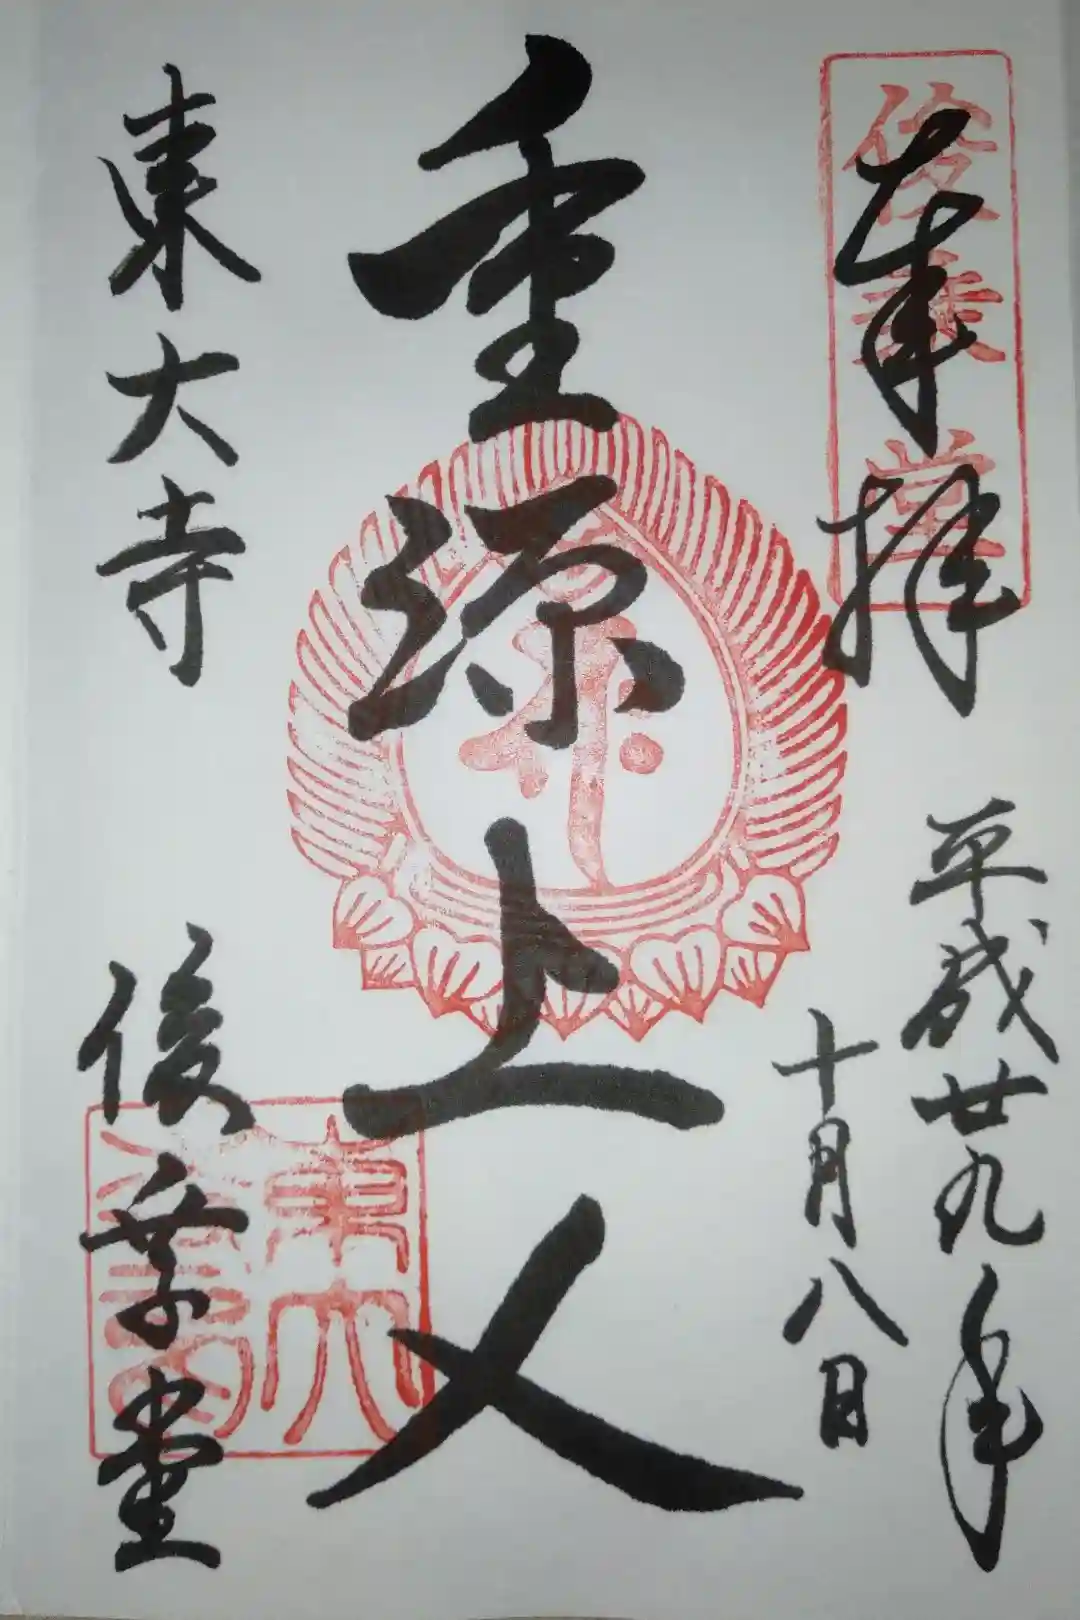 奉拝
俊乗堂
平成廿九年
十月八日
重源上人
東大寺
俊乗堂